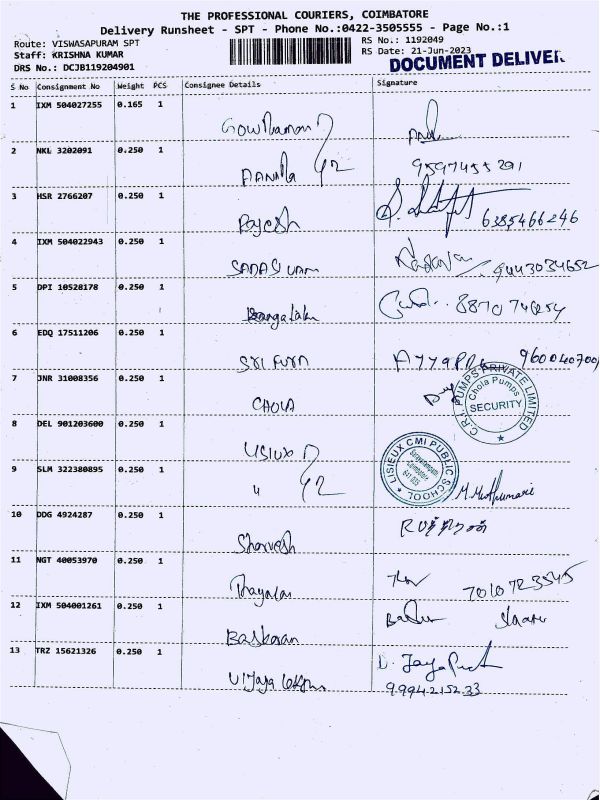 THE PROFESSIONAL COURIERS, COIMBATORE
Delivery Runsheet - SPT - Phone No.:0422-3505555 - Page No.:1
Route: VISWASAPURAM SPT RS No.: 1192049
Staff: KRISHNA KUMAR RS Date: 21-Jun-2023
DRS No.: DCJB119204901 DOCUMENT DELIVER
S No Consignment No Weight PCS Consignee Details Signature
1 IXM 504027255 0.165 1
Gowthaman
2 NKL 3202091 0.250 1
3 HSR 2766207 0.250 1
Rajesh 6385466246
4 IXM 504022943 0.250 1
SADASIVAM 9443034652
5 DPI 10528178 0.250 1
6 EDQ 17511206 0.250 1
SRI FURN
7 JNR 31008356 0.250 1
CHOLA
C.R.I. PUMPS PRIVATE LIMITED
Chola Pumps
SECURITY
8 DEL 901203600 0.250 1
LISIUX
LISIEUX CMI PUBLIC SCHOOL
Saravanampatti
Coimbatore
641 035
9 SLM 322380895 0.250 1
"
M. Muthumari
10 DDG 4924287 0.250 1
Sharvesh
11 NGT 40053970 0.250 1
Thayalan 7010723545
12 IXM 504001261 0.250 1
Baskaran
13 TRZ 15621326 0.250 1
9994215233